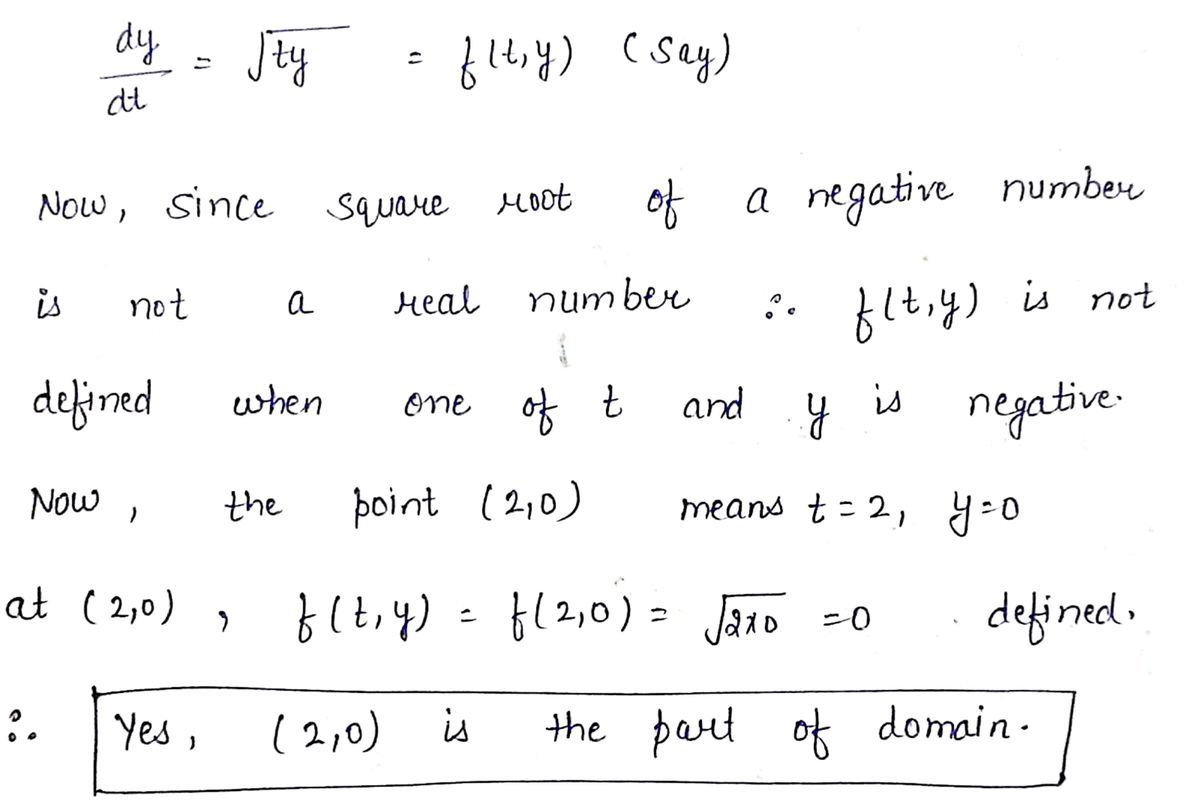 dy/dt = √ty = f(t,y) (Say)
Now, since square root of a negative number
is not a real number ∴ f(t,y) is not
defined when one of t and y is negative.
Now, the point (2,0) means t = 2, y=0
at (2,0), f(t,y) = f(2,0) = √2×0 =0 . defined.
∴ Yes, (2,0) is the part of domain.